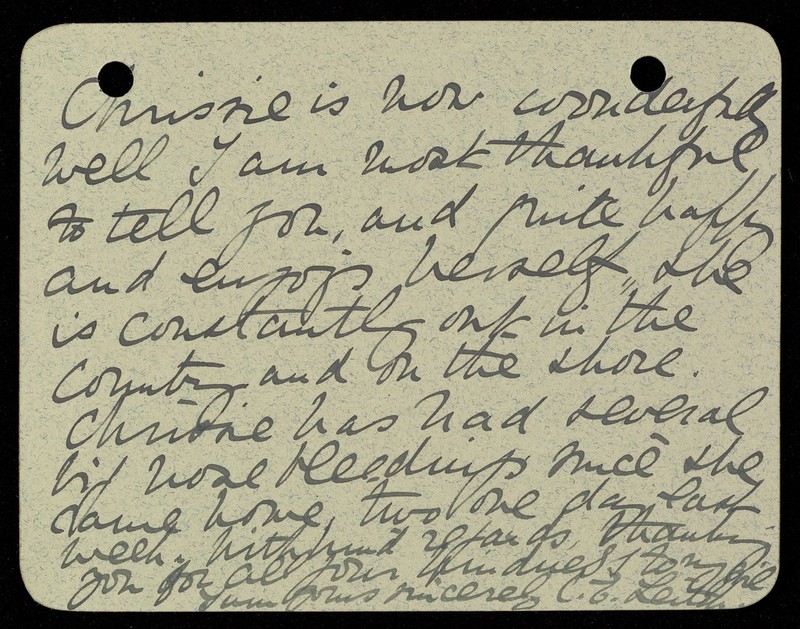 Chrissie is now wonderfully
well I am most thankful
to tell you, and quite happy
and enjoys herself, she
is constantly out in the
country and on the shore.
Chrissie has had several
nose bleedings since she
came home, two one day last
week. With kind regards, thanking
you for all your kindness to my girl
I am yours sincerely C. E.